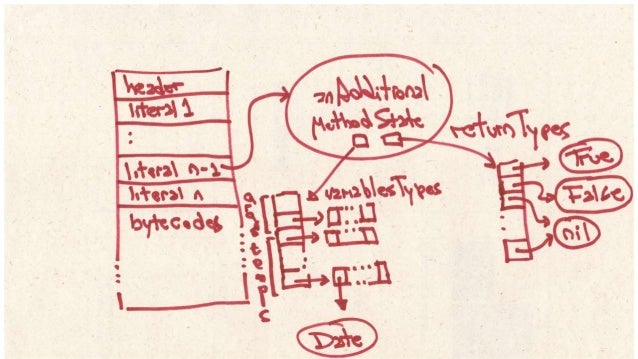 header
literal 1
:
literal n-1
literal n
bytecodes
anAdditional
Method State
returnTypes
True
False
nil
variablesTypes
args
temps
Date